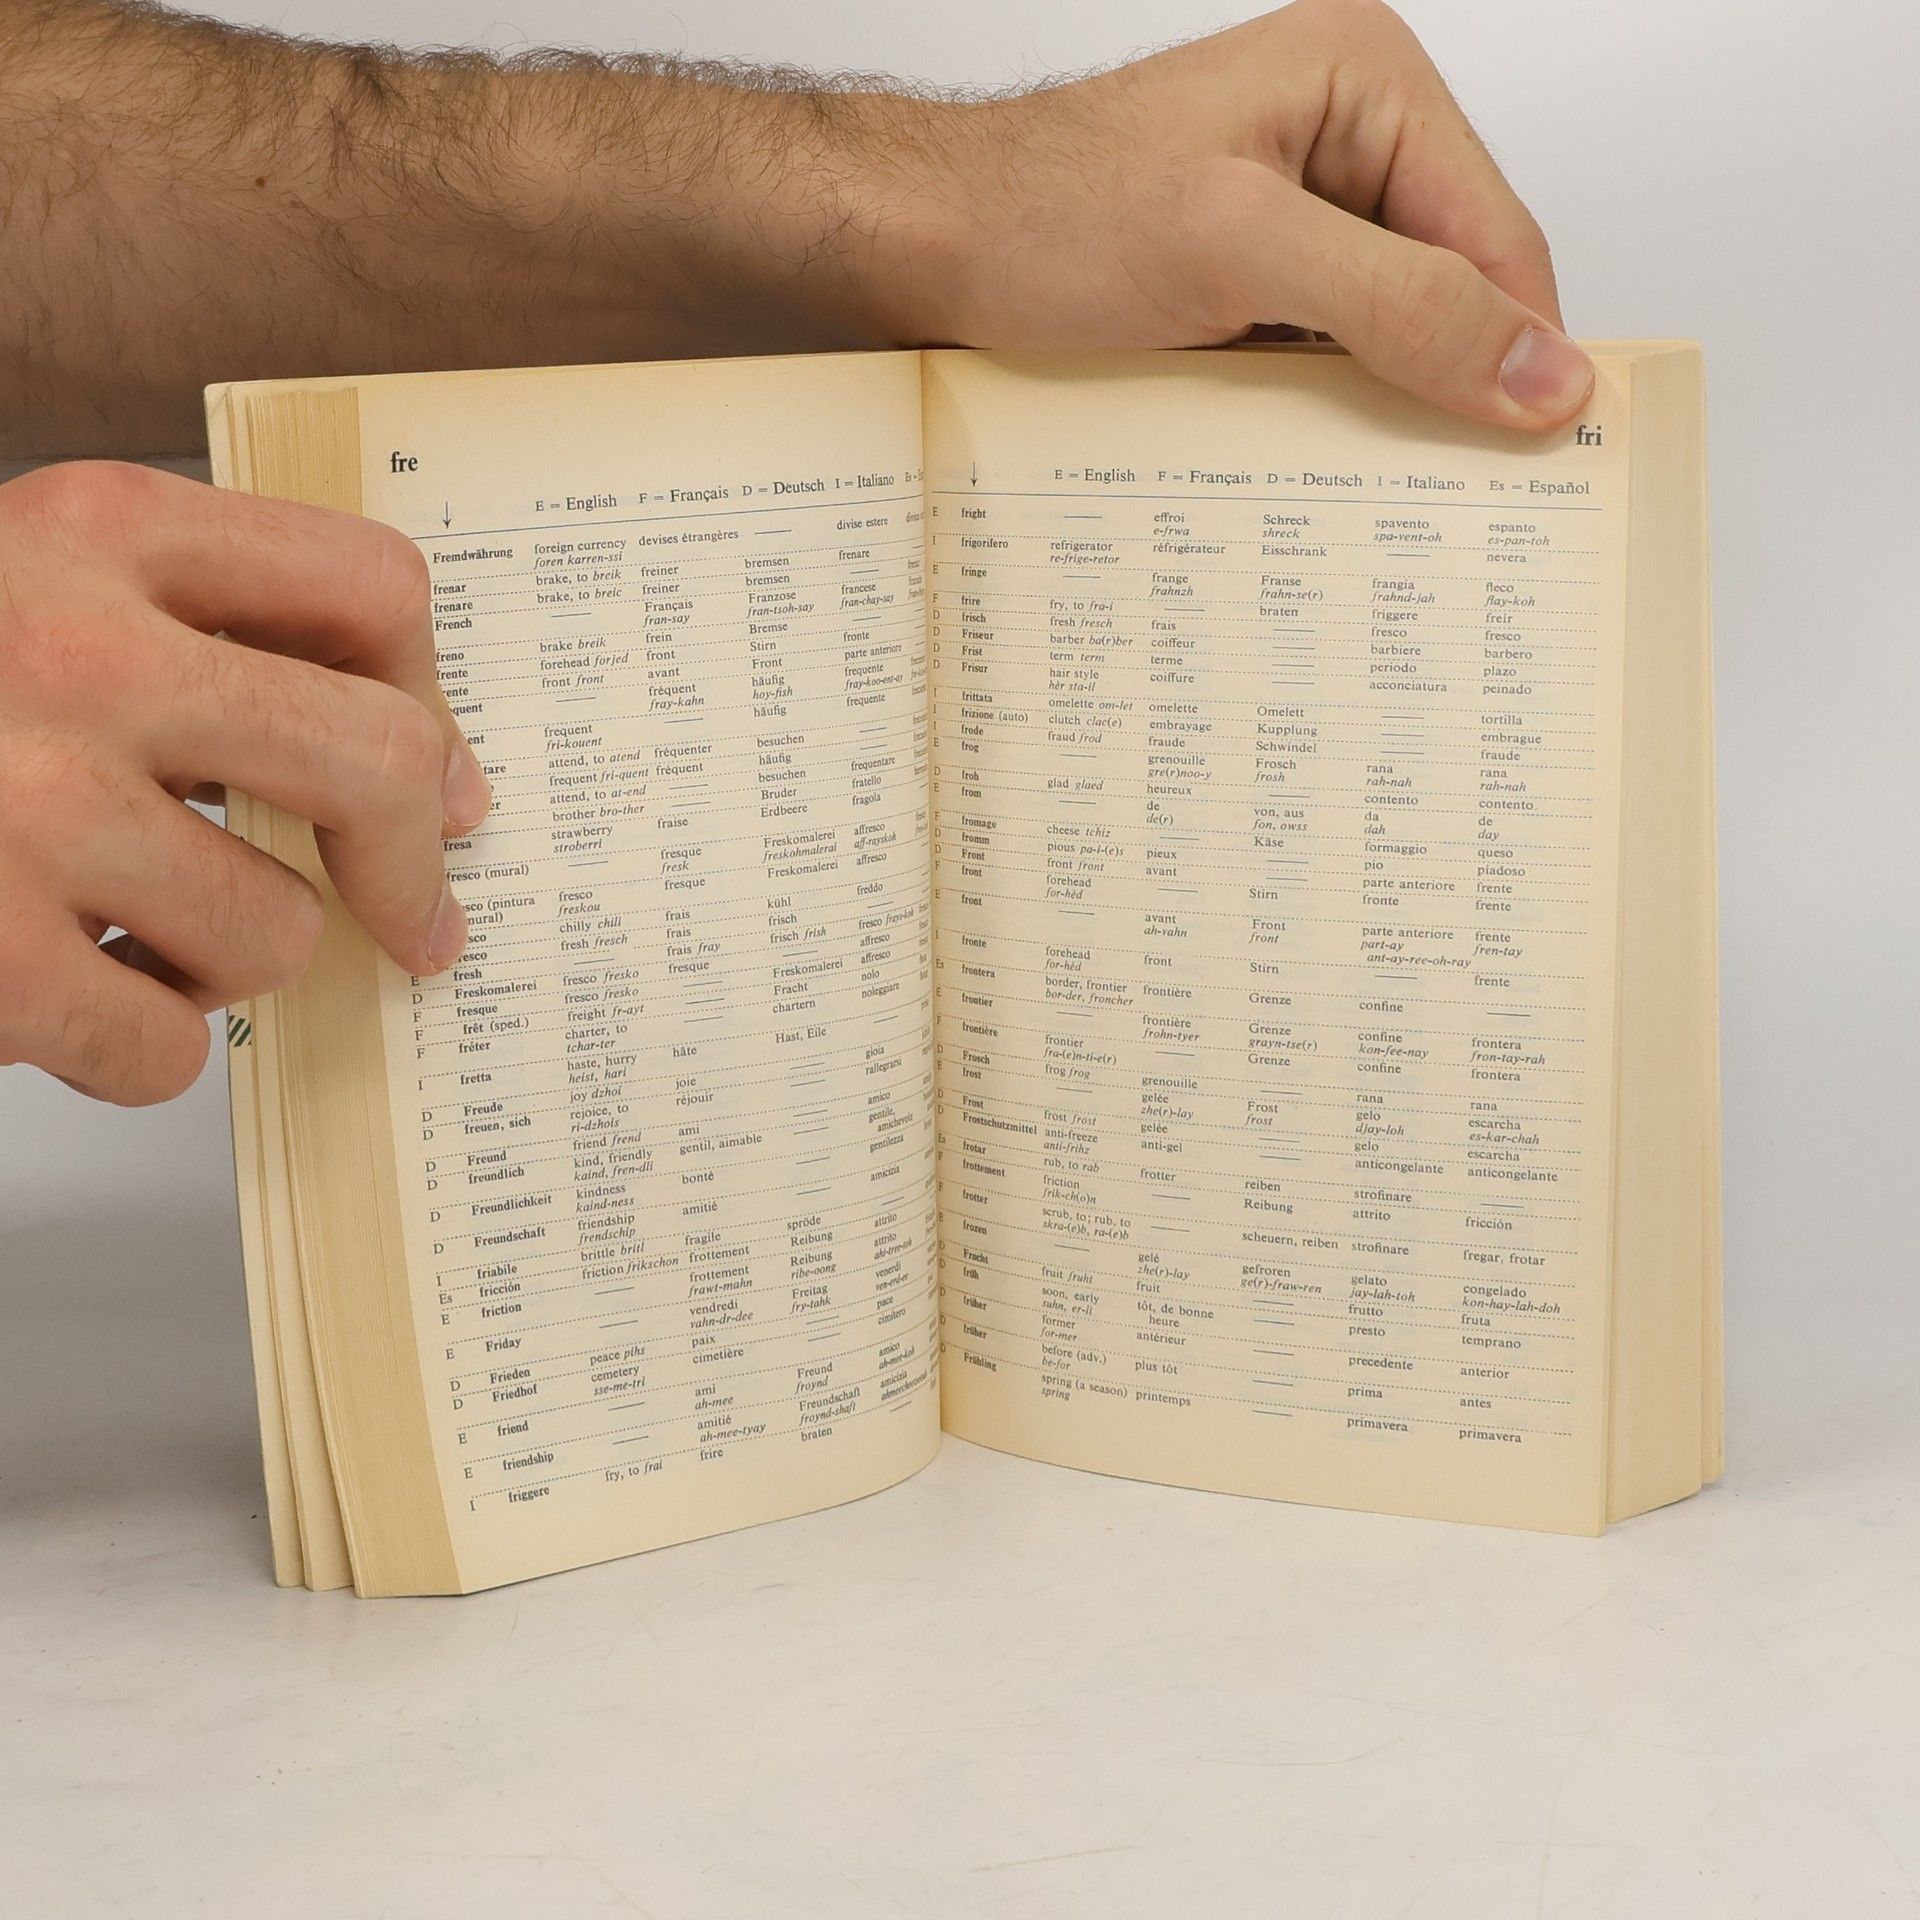 fre
E = English F = Français D = Deutsch I = Italiano
Fremdwährung foreign currency devises étrangères —— divise estere
foren karren-ssi
frenar brake, to breik freiner bremsen frenare
frenare brake, to breic freiner bremsen
French —— Français Franzose francese
fran-say fran-tsoh-say fran-chay-say
freno brake breik frein Bremse
frente forehead forjed front Stirn fronte
front front avant Front parte anteriore
—— fréquent häufig frequente
fray-kahn hoy-fish fray-koo-ent-ay
frequent —— häufig frequente
fri-kouent
attend, to atend fréquenter besuchen ——
frequent fri-quent fréquent häufig ——
attend, to at-end —— besuchen frequentare
brother bro-ther —— Bruder fratello
fresa strawberry fraise Erdbeere fragola
stroberri
fresco (mural) —— fresque Freskomalerei affresco
fresk freskohmalerai aff-rayskoh
(pintura fresco fresque Freskomalerei affresco
mural) freskou
chilly chili frais kühl freddo
fresh fresch frais frisch ——
E fresh —— frais fray frisch frish fresco frays-koh
D Freskomalerei fresco fresko fresque —— affresco
F fresque fresco fresko —— Freskomalerei affresco
F frêt (sped.) freight fr-ayt —— Fracht nolo
F fréter charter, to —— chartern noleggiare
tchar-ter
I fretta haste, hurry hâte Hast, Eile ——
heist, hari
D Freude joy dzhoi joie —— gioia
D freuen, sich rejoice, to réjouir —— rallegrarsi
ri-dzhois
D Freund friend frend ami —— amico
D freundlich kind, friendly gentil, aimable —— gentile,
kaind, fren-dli amichevole
D Freundlichkeit kindness bonté —— gentilezza
kaind-ness
D Freundschaft friendship amitié —— amicizia
frendschip
I friabile brittle britl fragile spröde ——
Es fricción friction frikschon frottement Reibung attrito
E friction —— frottement Reibung attrito
frawt-mahn ribe-oong
E Friday —— vendredi Freitag venerdi
vahn-dr-dee fry-tahk ven-erd-ee
D Frieden peace pihs paix —— pace
D Friedhof cemetery cimetière —— cimitero
sse-me-tri
E friend —— ami Freund amico
ah-mee froynd ah-mee-koh
E friendship —— amitié Freundschaft amicizia
ah-mee-tyay froynd-shaft
I friggere fry, to frai frire braten ——
fri
E = English F = Français D = Deutsch I = Italiano Es = Español
E fright —— effroi Schreck spavento espanto
e-frwa shreck spa-vent-oh es-pan-toh
I frigorifero refrigerator réfrigérateur Eisschrank —— nevera
re-frige-retor
E fringe —— frange Franse frangia fleco
frahnzh frahn-se(r) frahnd-jah flay-koh
F frire fry, to fra-i —— braten friggere freír
D frisch fresh fresch frais —— fresco fresco
D Friseur barber ba(r)ber coiffeur —— barbiere barbero
D Frist term term terme —— periodo plazo
D Frisur hair style coiffure —— acconciatura peinado
hèr sta-il
I frittata omelette om-let omelette Omelett —— tortilla
I frizione (auto) clutch clac(e) embrayage Kupplung —— embrague
I frode fraud frod fraude Schwindel —— fraude
E frog —— grenouille Frosch rana rana
gre(r)noo-y frosh rah-nah rah-nah
D froh glad glaed heureux —— contento contento
E from —— de von, aus da de
de(r) fon, owss dah day
F fromage cheese tchiz —— Käse formaggio queso
D fromm pious pa-i-(e)s pieux —— pio piadoso
D Front front front avant —— parte anteriore frente
F front forehead —— Stirn fronte frente
for-hèd
E front —— avant Front parte anteriore frente
ah-vahn front part-ay fren-tay
ant-ay-ree-oh-ray
I fronte forehead front Stirn —— frente
for-hèd
Es frontera border, frontier frontière Grenze confine ——
bor-der, froncher
E frontier —— frontière Grenze confine frontera
frohn-tyer grayn-tse(r) kon-fee-nay fron-tay-rah
F frontière frontier —— Grenze confine frontera
fra-(e)n-ti-e(r)
D Frosch frog frog grenouille —— rana rana
E frost —— gelée Frost gelo escarcha
zhe(r)-lay frost djay-loh es-kar-chah
D Frost frost frost gelée —— gelo escarcha
D Frostschutzmittel anti-freeze anti-gel —— anticongelante anticongelante
anti-frihz
Es frotar rub, to rab frotter reiben strofinare ——
F frottement friction —— Reibung attrito fricción
frik-ch(o)n
F frotter scrub, to; rub, to —— scheuern, reiben strofinare fregar, frotar
skra-(e)b, ra-(e)b
E frozen —— gelé gefroren gelato congelado
zhe(r)-lay ge(r)-fraw-ren jay-lah-toh kon-hay-lah-doh
D Frucht fruit fruht fruit —— frutto fruta
D früh soon, early tôt, de bonne —— presto temprano
suhn, er-li heure
D früher former antérieur —— precedente anterior
for-mer
D früher before (adv.) plus tôt —— prima antes
be-for
D Frühling spring (a season) printemps —— primavera primavera
spring